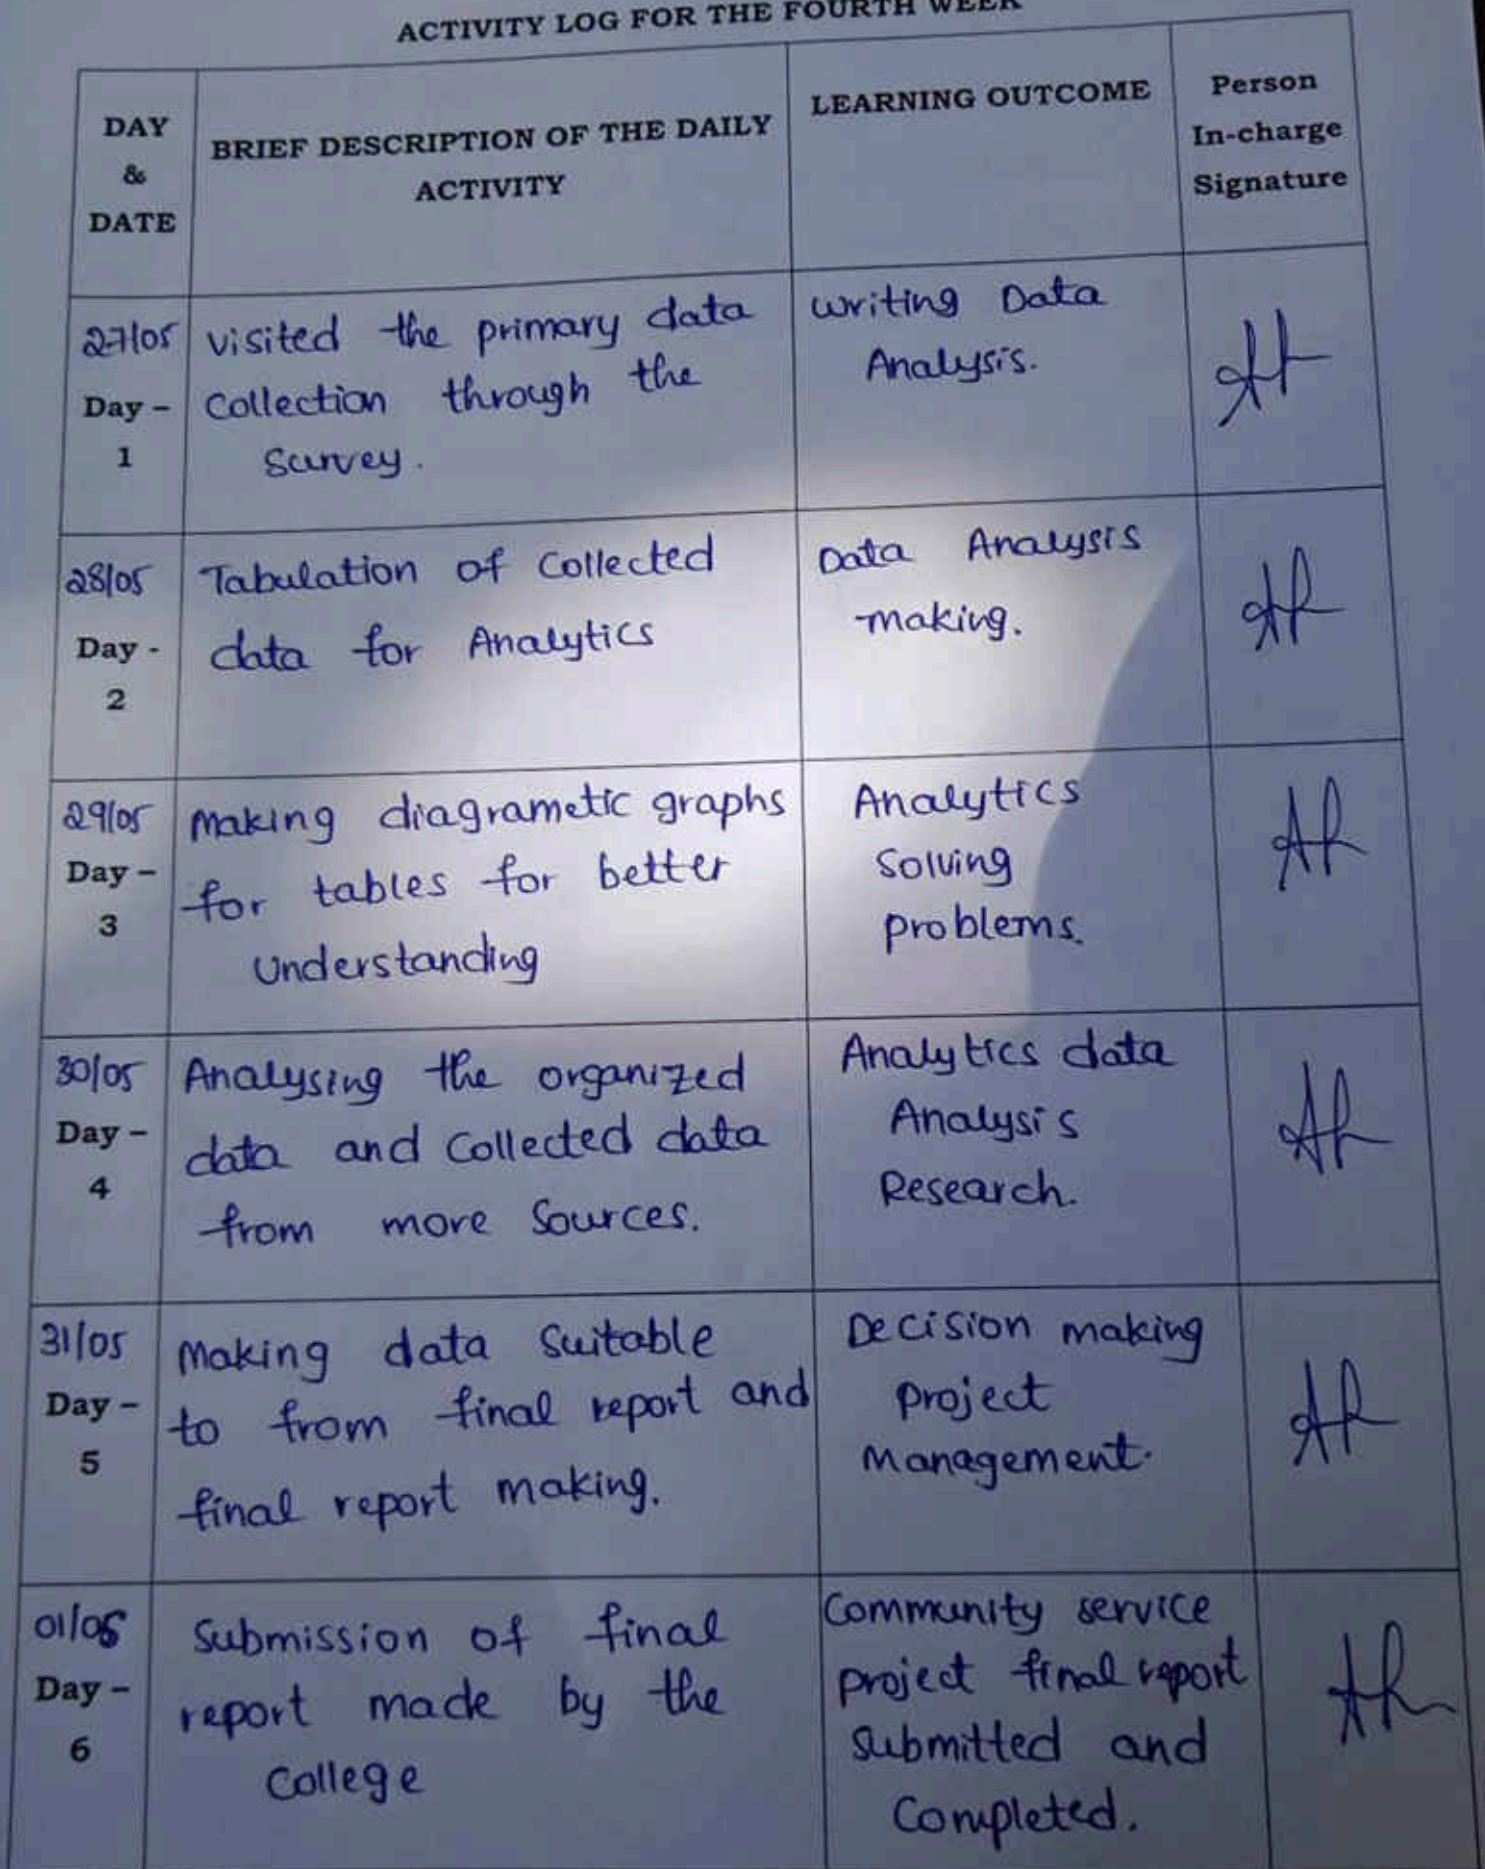 ACTIVITY LOG FOR THE FOURTH WEEK
DAY
&
DATE
BRIEF DESCRIPTION OF THE DAILY
ACTIVITY
LEARNING OUTCOME
Person
In-charge
Signature
27/05
Day –
1
visited the primary data
Collection through the
Survey.
writing Data
Analysis.
28/05
Day -
2
Tabulation of Collected
data for Analytics
Data Analysis
making.
29/05
Day –
3
Making diagrametic graphs
for tables for better
Understanding
Analytics
Solving
problems.
30/05
Day –
4
Analysing the organized
data and Collected data
from more Sources.
Analytics data
Analysis
Research.
31/05
Day –
5
Making data Suitable
to from final report and
final report making.
Decision making
project
Management.
Day –
6
Submission of final
report made by the
College
Community service
project final report
submitted and
Completed.